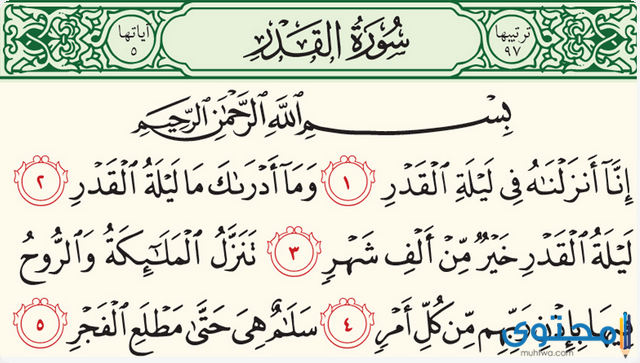 ترتيبها ٩٧ سُورَةُ القَدْرِ آياتها ٥
بِسْمِ اللَّهِ الرَّحْمَٰنِ الرَّحِيمِ
إِنَّآ أَنزَلْنَٰهُ فِى لَيْلَةِ ٱلْقَدْرِ ١ وَمَآ أَدْرَىٰكَ مَا لَيْلَةُ ٱلْقَدْرِ ٢
لَيْلَةُ ٱلْقَدْرِ خَيْرٌ مِّنْ أَلْفِ شَهْرٍ ٣ تَنَزَّلُ ٱلْمَلَٰٓئِكَةُ وَٱلرُّوحُ
فِيهَا بِإِذْنِ رَبِّهِم مِّن كُلِّ أَمْرٍ ٤ سَلَٰمٌ هِىَ حَتَّىٰ مَطْلَعِ ٱلْفَجْرِ ٥
محتوى
muhtwa.com